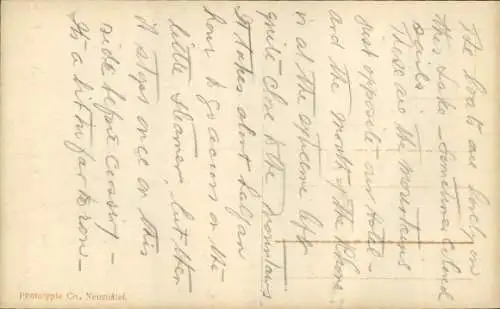 The boats are lovely on
this Lake - Sometimes colored
sails.
These are the mountains
just opposite our hotel -
and the mouth of the Rhone
is at the extreme left
quite close to the Mountains.
It takes about half an
hour to go across on the
little steamer, but then
it stops once on this
side before crossing -
It's a bit too far to row -
Phototypie Co., Neuchâtel.